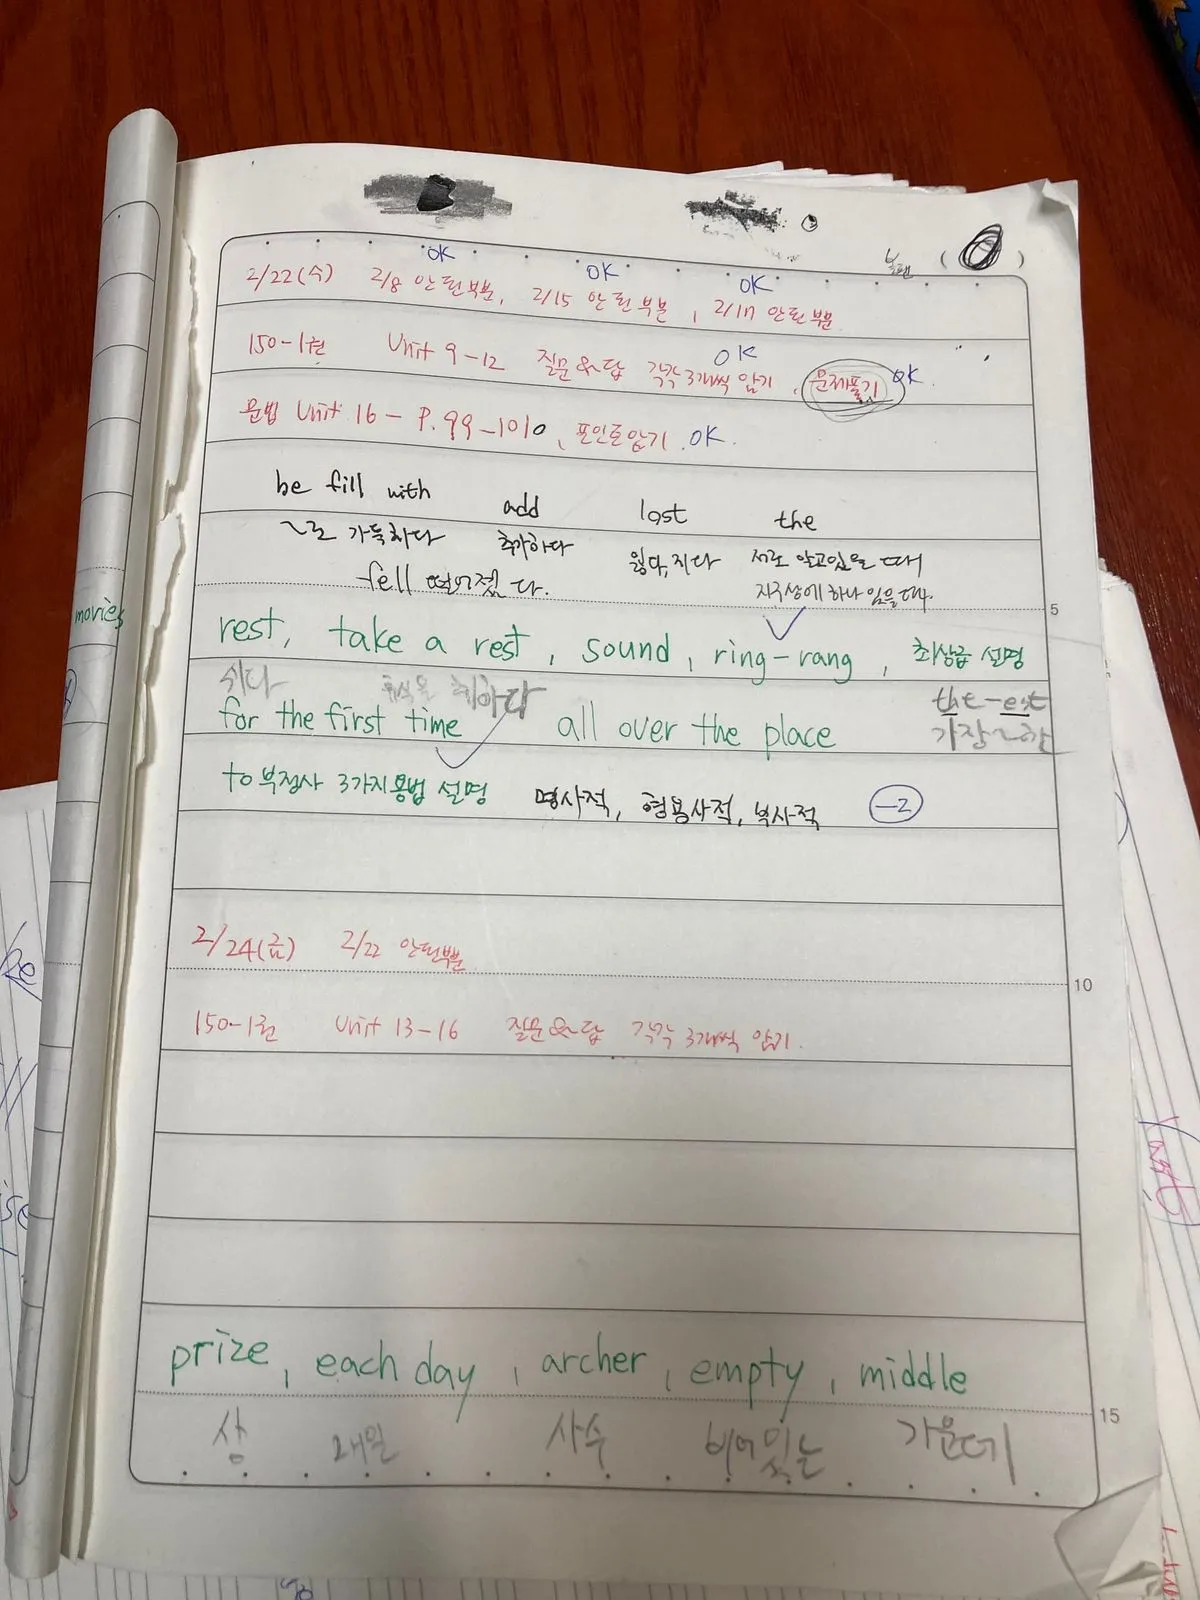 볼펜 ( )
OK OK OK
2/22(수) 2/8 안된부분, 2/15 안된부분, 2/17 안된부분
OK
150-1권 Unit 9-12 질문&답 각각 3개씩 암기, 문제풀기 OK.
문법 Unit 16 - P.99-1010, 포인트암기. OK.
be fill with add lost the
~로 가득차다 추가하다 잃다, 지다 서로 알고있을 때
fell 떨어졌다. 지구상에 하나 있을때.
movies
rest, take a rest, sound, ring-rang, 최상급 설명
쉬다 휴식을 취하다 the-est
for the first time all over the place 가장~한
to부정사 3가지용법 설명 명사적, 형용사적, 부사적 -2
2/24(금) 2/22 안된부분
150-1권 Unit 13-16 질문&답 각각 3개씩 암기.
prize, each day, archer, empty, middle
상 매일 사수 비어있는 가운데
5
10
15
Re
ise